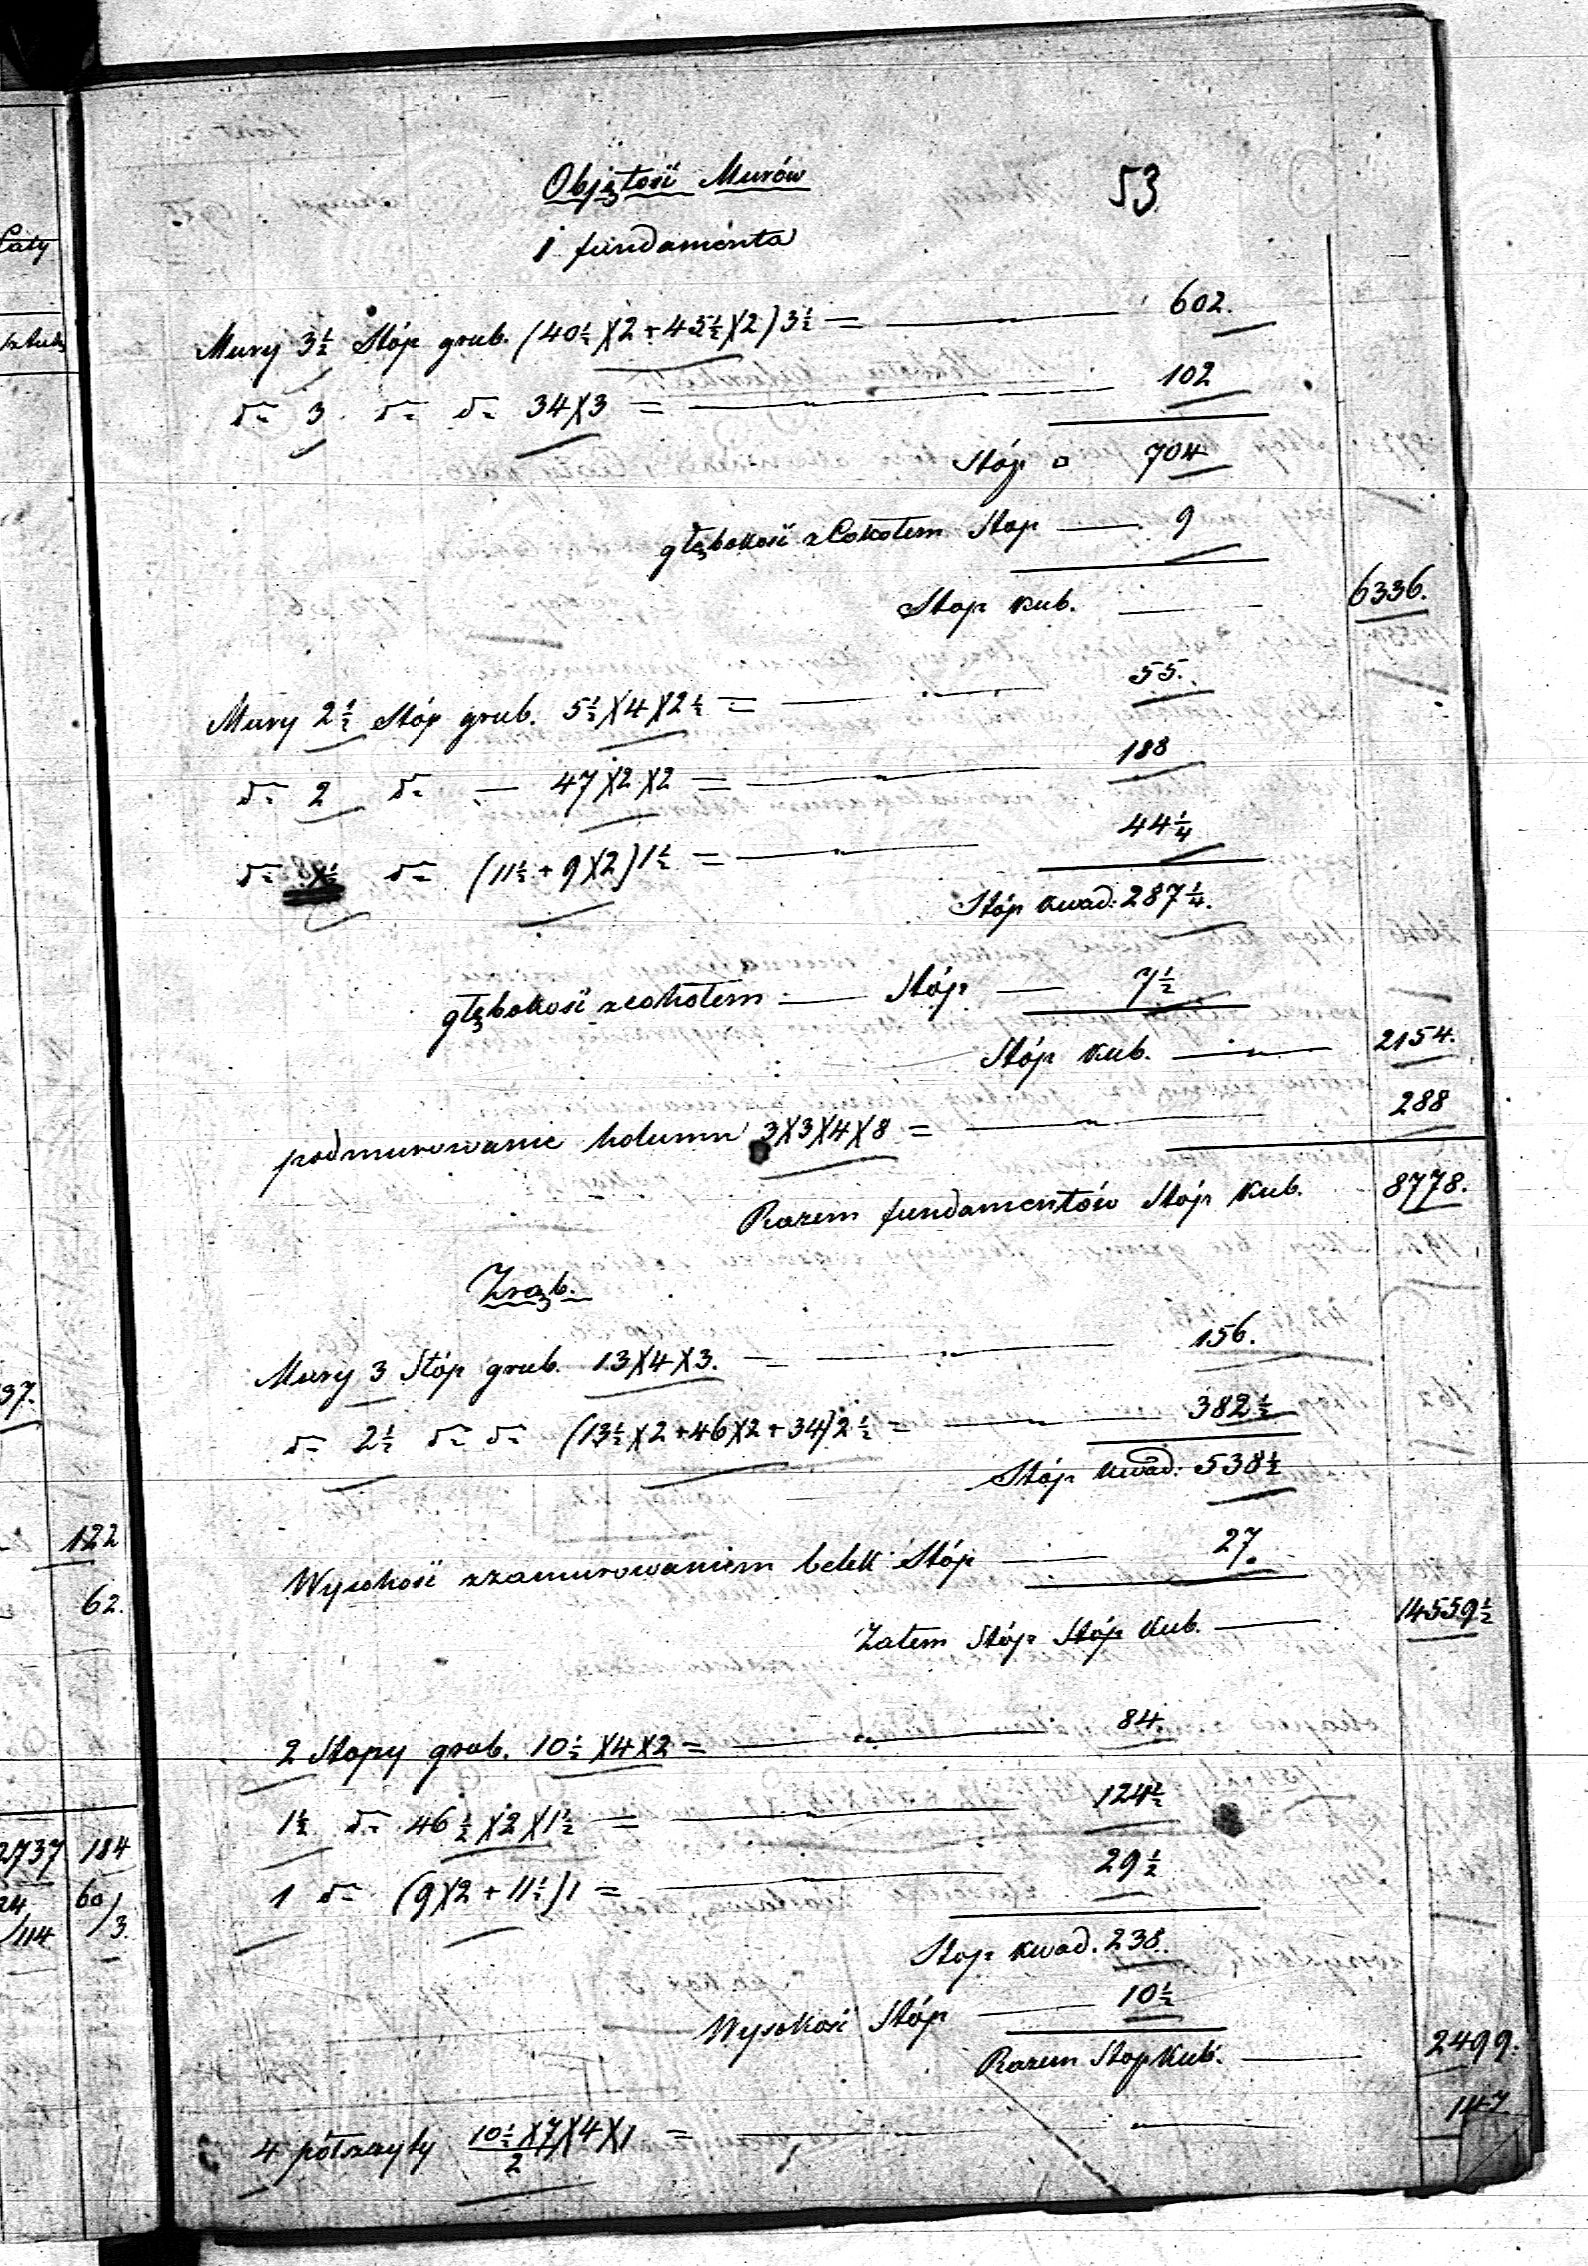 Objętość Murów 53
i fundamenta
Mury 3½ Stóp grub. (40½X2+45½X2)3½ = 602.
dº 3 dº dº 34X3 = 102
Stóp □ 704
głębokość z Cokołem Stóp 9
Stóp kub. 6336.
Mury 2½ Stóp grub. 5½X4X2½ = 55.
dº 2 dº 47X2X2 = 188
dº 1½ dº (11½+9X2)1½ = 44¼
Stóp kwad: 287¼.
głębokość z cokołem Stóp 7½
Stóp kub. 2154.
podmurowanie kolumn 3X3X4X8 = 288
Razem fundamentów Stóp Kub. 8778.
Zrąb.
Mury 3 Stóp grub. 13X4X3. = 156.
dº 2½ dº dº (13½X2+46X2+34)2½ = 382½
Stóp kwad: 538½
Wysokość z zamurowaniem belek Stóp 27.
Zatem Stóp Stóp Kub. 14559½
2 Stopy grub. 10½X4X2 = 84.
1½ dº 46½X2X1½ = 124½
1 dº (9X2+11½)1 = 29½
Stóp kwad. 238.
Wysokość Stóp 10½
Razem Stóp Kub. 2499.
4 półszczyty 10½X7/2 X4X1 = 147
Cały
sztuk
37.
122
62.
2737 184
24/114 60/3.